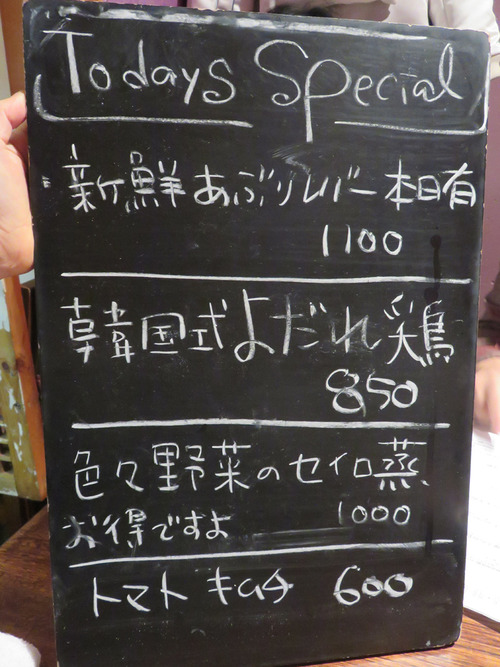 Todays Special
新鮮あぶりレバー本日有
1100
韓国式よだれ鶏
850
色々野菜のセイロ蒸
お得ですよ 1000
トマト キムチ 600